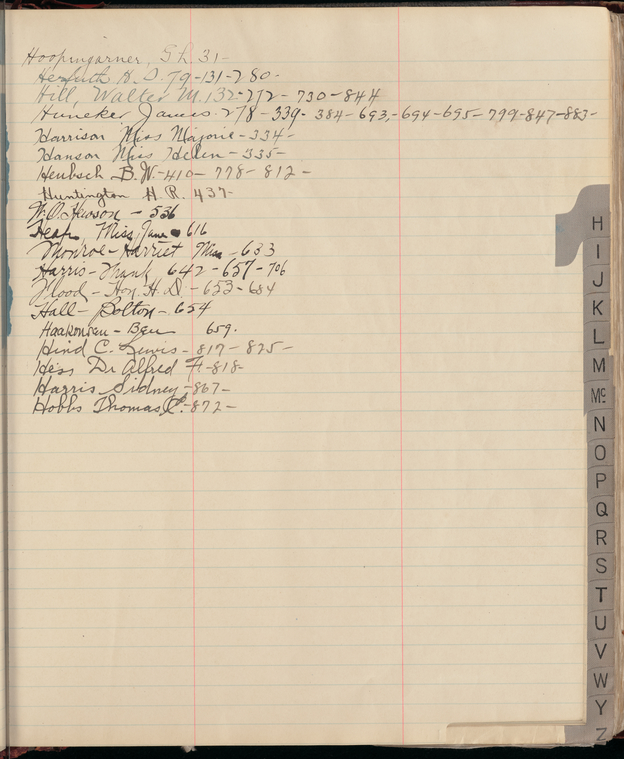 Hoopingarner, S.h. 31-
Herfuth H. S. 79-131-780-
Hill, Walter M. 132-272-730-844
Huneker James-278-339-384-693,-694-695-799-847-883-
Harrison Miss Majorie-334-
Hanson Miss Helen-335-
Heubsch B.W.-410-778-812-
Huntington H.R. 437-
W.O. Hewson - 536
Heap, Miss Jane 616
Monroe-Harriet Miss-633
Harris-Frank 642-657-706
Hon. H. D.-653-684
Hall-Bolton-654
Haakonsen-Ben 659.
Hind C. Lewis-817-825-
Hess Dr Alfred F-818-
Harris Sidney-867-
Hobbs Thomas C.-872-
H
I
J
K
L
M
Mc
N
O
P
Q
R
S
T
U
V
W
Y
Z